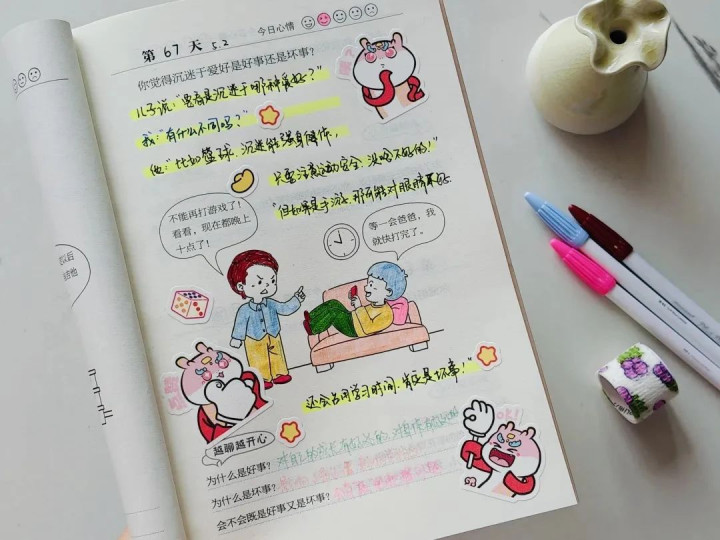 今日心情
第 67 天 5.2
你觉得沉迷于爱好是好事还是坏事？
儿子说："要看是沉迷于哪种爱好？"
我："有什么不同吗？"
他："比如篮球，沉迷能强身健体，
只要注意运动安全，没啥不好的！"
"但如果是手游，那可能对眼睛不好
不能再打游戏了！
看看，现在都晚上
十点了！
等一会爸爸，我
就快打完了。
还会占用学习时间，肯定是坏事！"
越聊越开心
为什么是好事？
为什么是坏事？
会不会既是好事又是坏事？
OK!